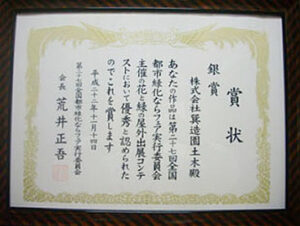 賞状
銀賞
株式会社巽造園土木殿
あなたの作品は第二十七回全国
都市緑化ならフェア実行委員会
主催の花と緑の屋外出展コンテ
ストにおいて優秀と認められた
のでこれを賞します
平成二十二年十一月十四日
第二十七回全国都市緑化ならフェア実行委員会
会長 荒井正吾